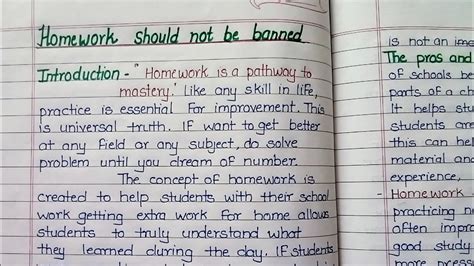 Homework should not be banned
Introduction - "Homework is a pathway to
mastery." Like any skill in life,
practice is essential for improvement. This
is universal truth. If want to get better
at any field or any subject, do solve
problem until you dream of number.
The concept of homework is
created to help students with their school
work getting extra work for home allows
students to truly understand what
they learned during the day. If students
is not an
The pros and
of schools be
parts of a ch
It helps stu
students are
this can hel
material and
experience,
- Homework
practicing n
often impro
good study
more respo